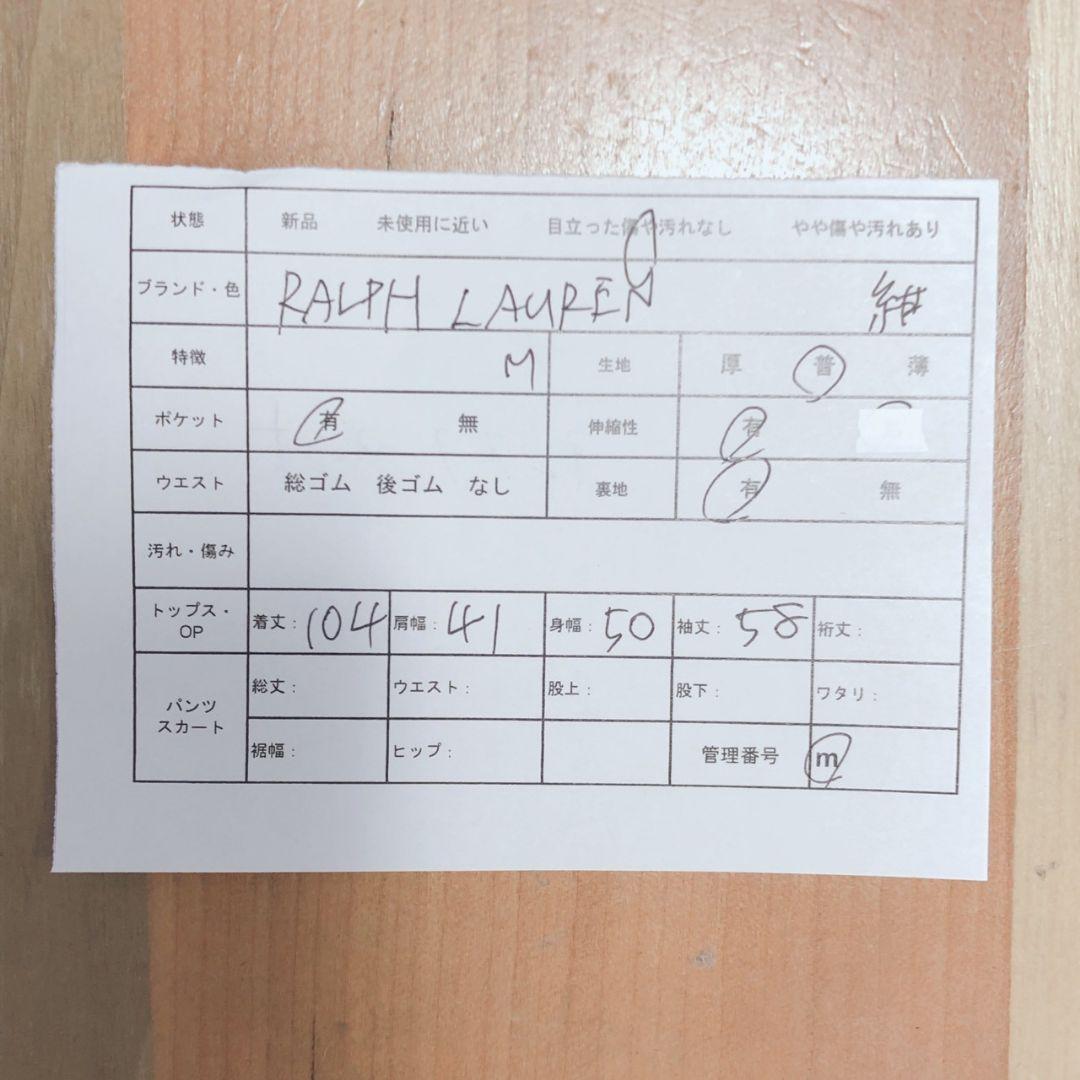 状態 新品 未使用に近い 目立った傷や汚れなし やや傷や汚れあり
ブランド・色 RALPH LAUREN 紺
特徴 M 生地 厚 普 薄
ポケット 有 無 伸縮性 有
ウエスト 総ゴム 後ゴム なし 裏地 有 無
汚れ・傷み
トップス・OP 着丈：104 肩幅：41 身幅：50 袖丈：58 裄丈：
パンツ スカート 総丈： ウエスト： 股上： 股下： ワタリ：
裾幅： ヒップ： 管理番号 m